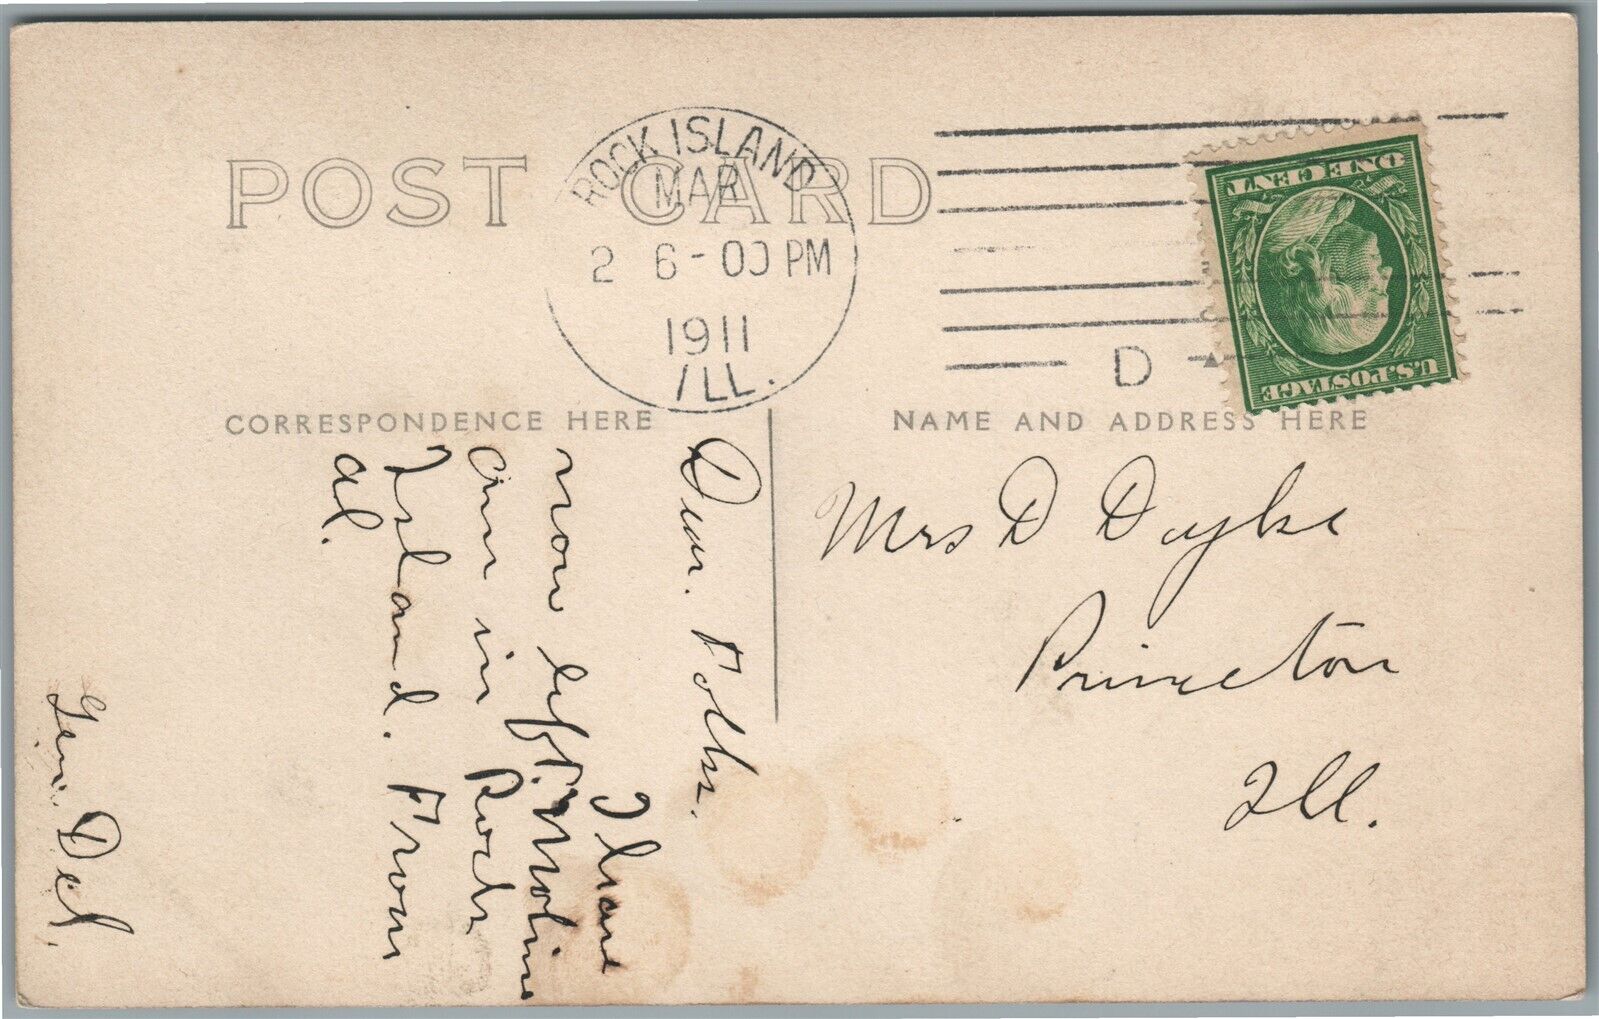 POST CARD
ROCK ISLAND
MAR
2 6-00 PM
1911
ILL.
D
ONE CENT
U.S. POSTAGE
CORRESPONDENCE HERE
NAME AND ADDRESS HERE
Dear. Folks.
I have
now left Moline
am in Rock
Island. From
al.
Gen. Del.
Mrs D Dyke
Princeton
Ill.